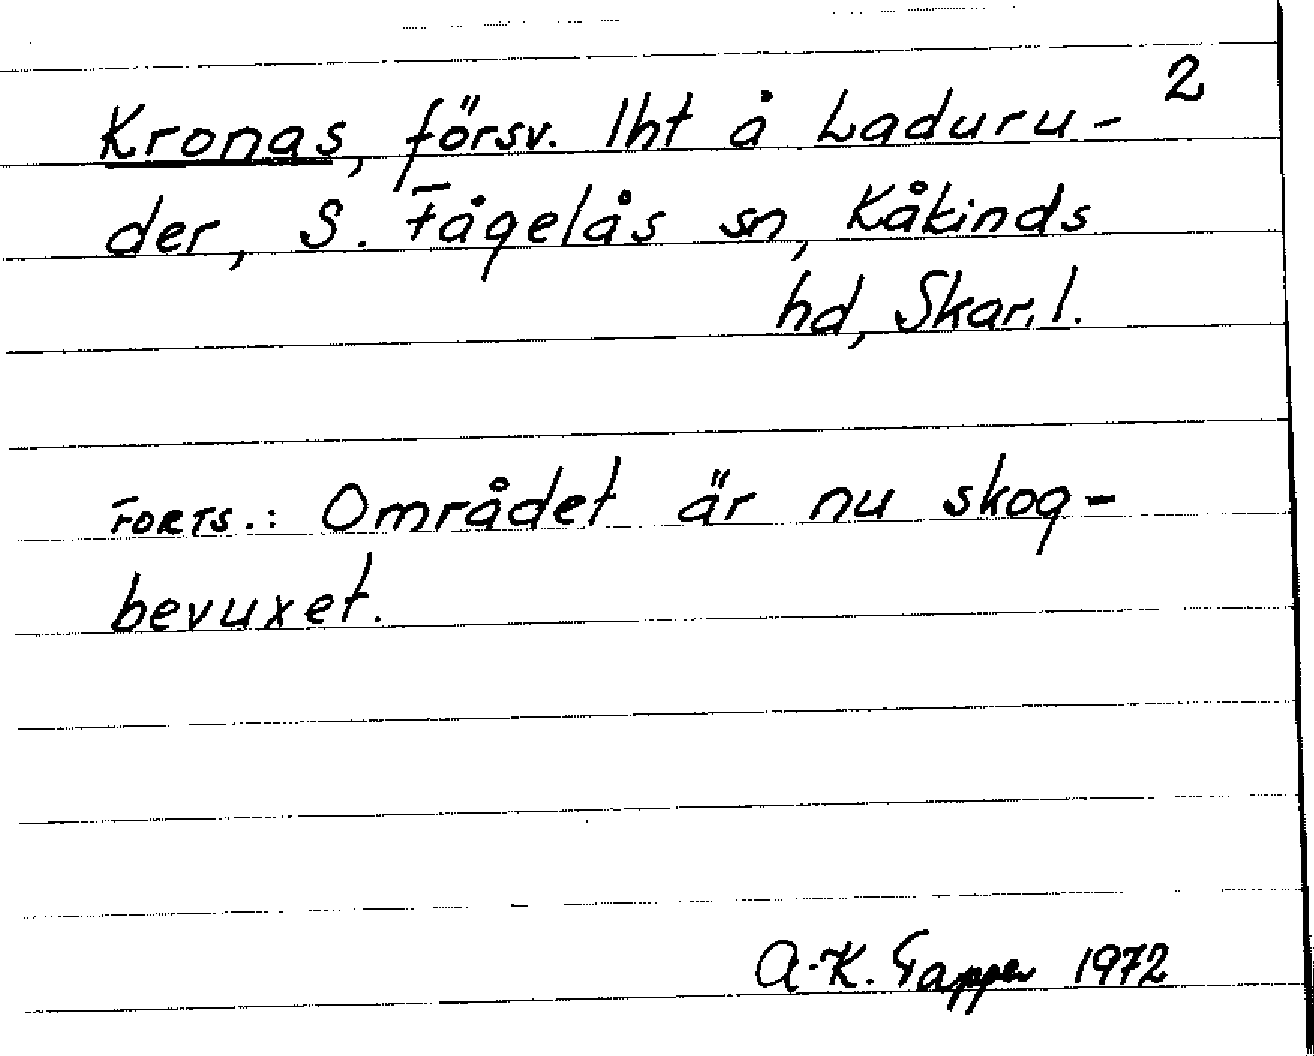 2
Kronas, försv. lht å Laduru-
der, S. Fågelås sn, Kåkinds
hd, Skar. l.
FORTS.: Området är nu skog-
bevuxet.
A-K. Tapper 1972